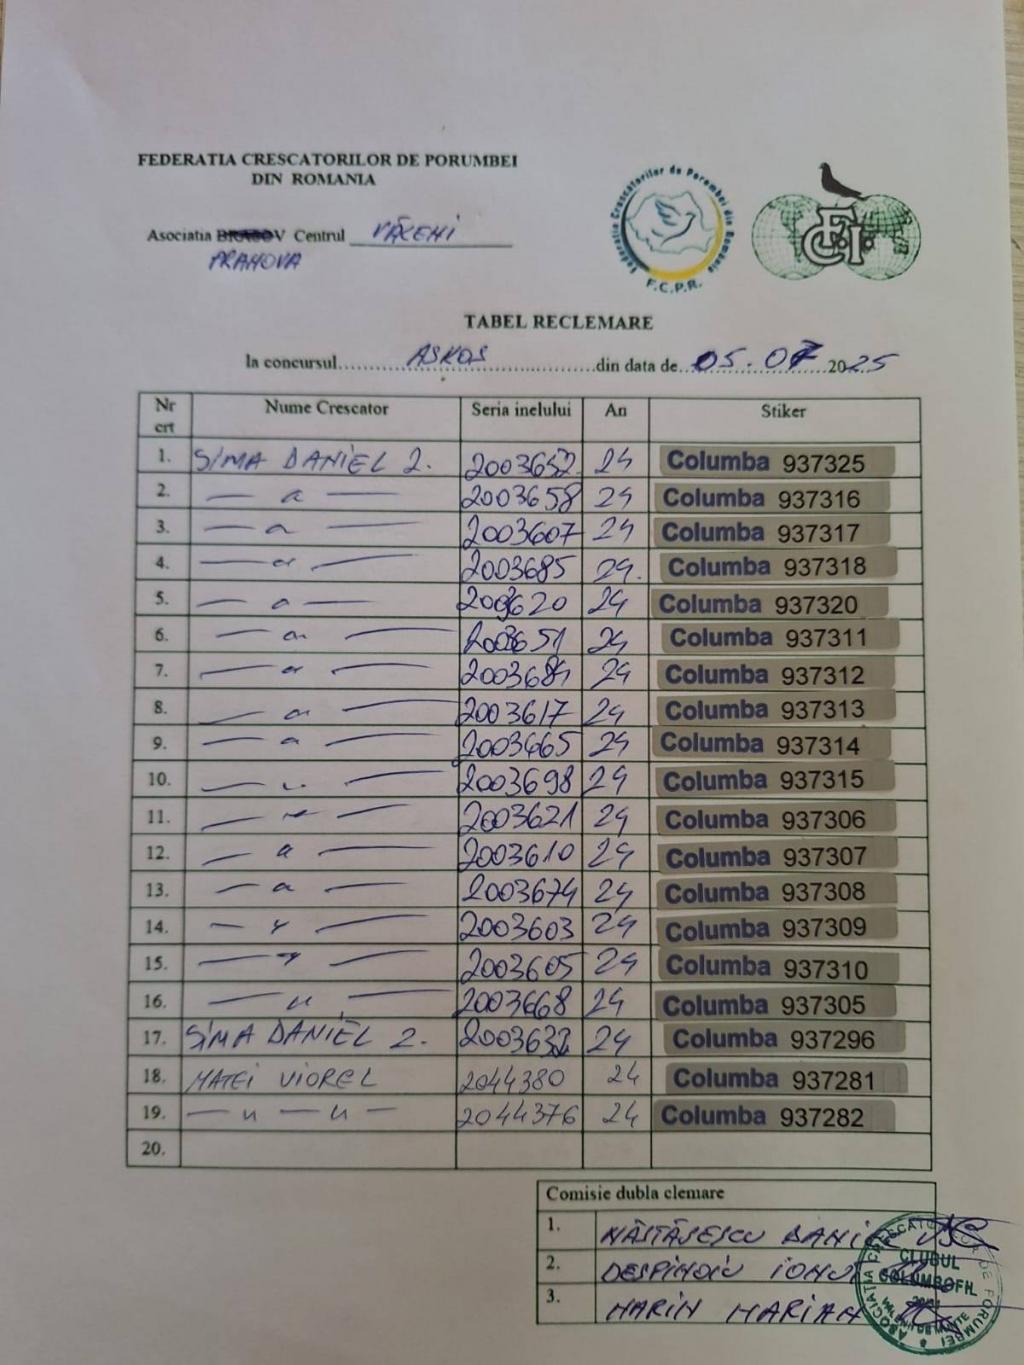 FEDERATIA CRESCATORILOR DE PORUMBEI
DIN ROMANIA
Federatia Crescătorilor de Porumbei din România
F.C.P.R.
FCI
Asociatia BRASOV Centrul VĂLENI
PRAHOVA
TABEL RECLEMARE
la concursul ASKOS din data de 05.07 2025
Nr crt Nume Crescator Seria inelului An Stiker
1. SIMA DANIEL 2. 2003652 24 Columba 937325
2. — " — 2003658 24 Columba 937316
3. — " — 2003607 24 Columba 937317
4. — " — 2003685 24. Columba 937318
5. — " — 2003620 24 Columba 937320
6. — " — 2003651 24 Columba 937311
7. — " — 2003684 24 Columba 937312
8. — " — 2003617 24 Columba 937313
9. — " — 2003665 24 Columba 937314
10. — " — 2003698 24 Columba 937315
11. — " — 2003621 24 Columba 937306
12. — " — 2003610 24 Columba 937307
13. — " — 2003674 24 Columba 937308
14. — " — 2003603 24 Columba 937309
15. — " — 2003605 24 Columba 937310
16. — " — 2003668 24 Columba 937305
17. SIMA DANIEL 2. 2003632 24 Columba 937296
18. MATEI VIOREL 2044380 24 Columba 937281
19. — " — " — 2044376 24 Columba 937282
20.
Comisie dubla clemare
1. NĂSTĂSESCU DANI
2. DESPINOIU IONUT
3. MARIN MARIAN
ASOCIATIA CRESCATORILOR DE PORUMBEI
CLUBUL
COLUMBOFIL
VALENII DE MUNTE